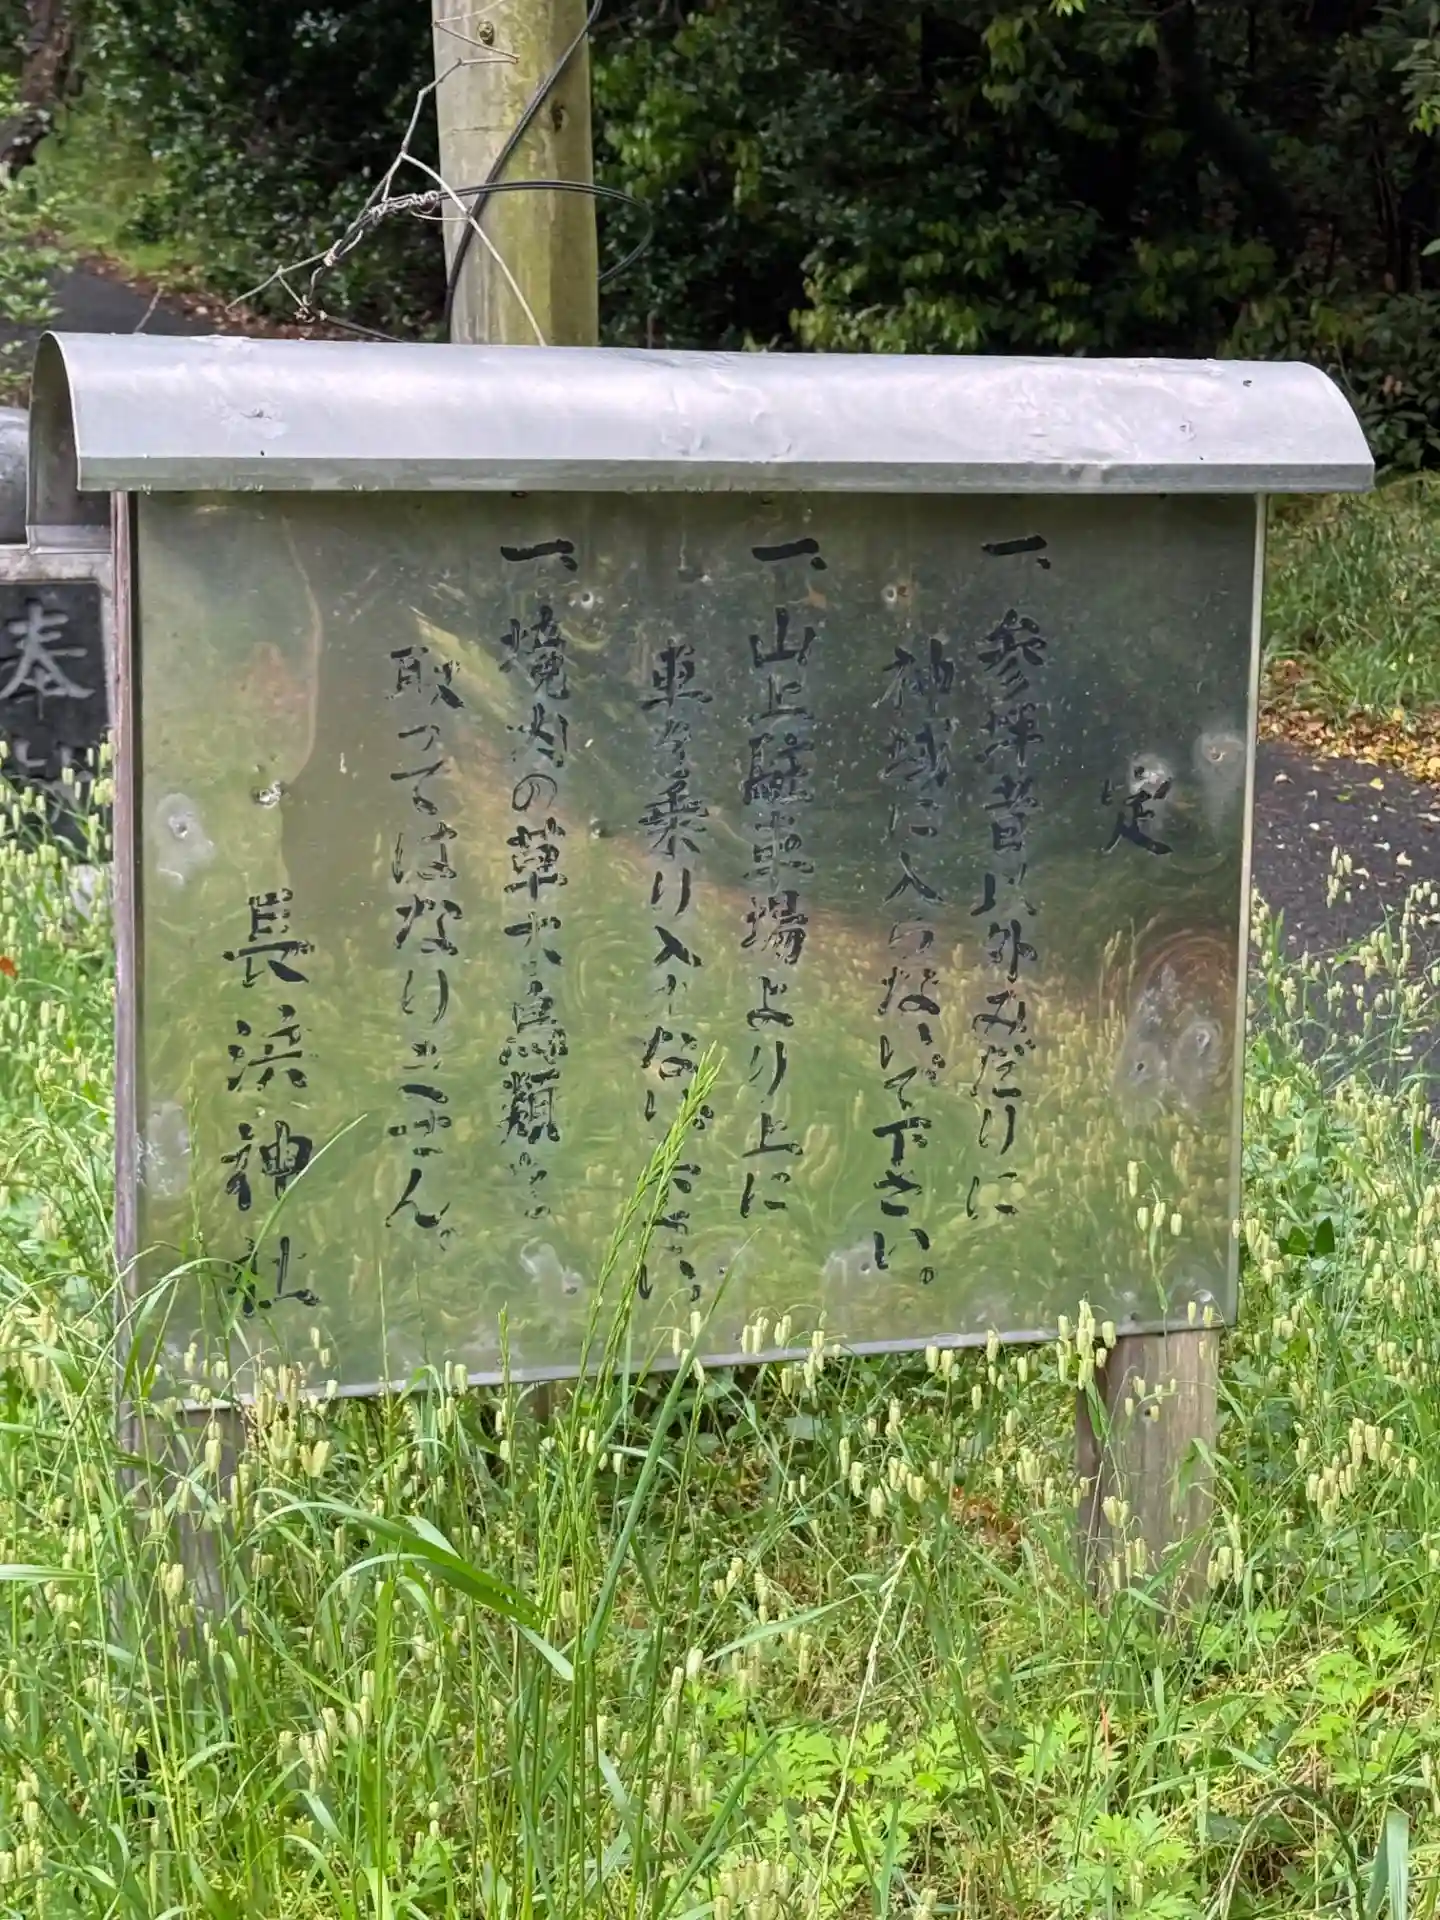 定
一、参拝者以外みだりに
神域に入らないで下さい。
一、山上駐車場より上に
車を乗り入れないで下さい。
一、境内の草木鳥類を
取ってはなりません。
長浜神社
奉